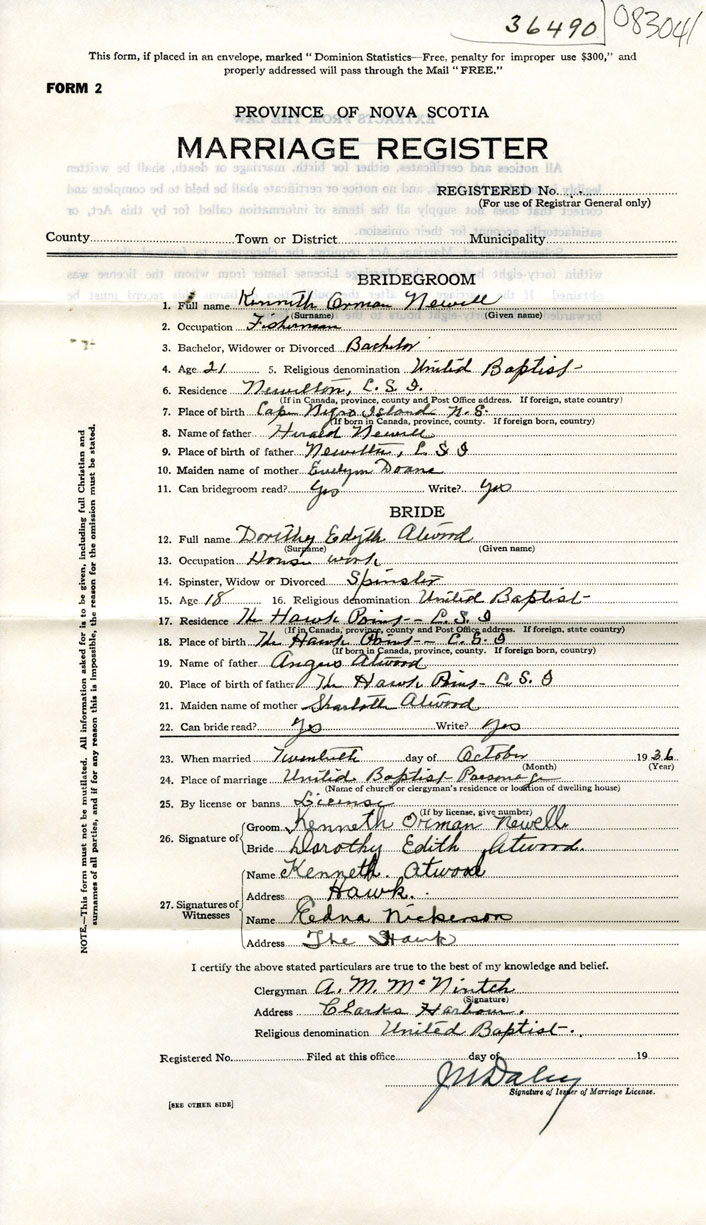 36490 083041
This form, if placed in an envelope, marked "Dominion Statistics—Free, penalty for improper use $300," and
properly addressed will pass through the Mail "FREE."
FORM 2
PROVINCE OF NOVA SCOTIA
MARRIAGE REGISTER
REGISTERED No.
(For use of Registrar General only)
County Town or District Municipality
BRIDEGROOM
1. Full name Kenneth Orman Newell
(Surname) (Given name)
2. Occupation Fisherman
3. Bachelor, Widower or Divorced Bachelor
4. Age 21 5. Religious denomination United Baptist
6. Residence Newellton, C. S. I.
(If in Canada, province, county and Post Office address. If foreign, state country)
7. Place of birth Cape Negro Island N. S.
(If born in Canada, province, county. If foreign born, country)
8. Name of father Newell
9. Place of father Newellton, C S I
10. Maiden name of mother Evelyn Doane
11. Can bridegroom read? Yes Write? Yes
BRIDE
12. Full name Dorithy Edyth Atwood
(Surname) (Given name)
13. Occupation House work
14. Spinster, Widow or Divorced Spinster
15. Age 18 16. Religious denomination United Baptist
17. Residence The Hawk Point - C. S. I
(If in Canada, province, county and Post Office address. If foreign, state country)
18. Place of birth The Hawk Point - C. S. I
(If born in Canada, province, county. If foreign born, country)
19. Name of father Angus Atwood
20. Place of birth of father The Hawk Point - C. S. I
21. Maiden name of mother Atwood
22. Can bride read? Yes Write? Yes
23. When married Twentieth day of October 1936
(Month) (Year)
24. Place of marriage United Baptist Parsonage
(Name of church or clergyman's residence or location of dwelling house)
25. By license or banns License
(If by license, give number)
26. Signature of Groom Kenneth Orman Newell
Bride Dorothy Edith Atwood
27. Signatures of Witnesses Name Kenneth Atwood
Address Hawk.
Name Edna Nickerson
Address The Hawk
I certify the above stated particulars are true to the best of my knowledge and belief.
Clergyman A. M. McNintch
(Signature)
Address Clarks Harbour.
Religious denomination United Baptist.
Registered No. Filed at this office day of 19
J M Daley
Signature of Issuer of Marriage License.
[SEE OTHER SIDE]
NOTE.—This form must not be mutilated. All information asked for is to be given, including full Christian and
surnames of all parties, and if for any reason this is impossible, the reason for the omission must be stated.